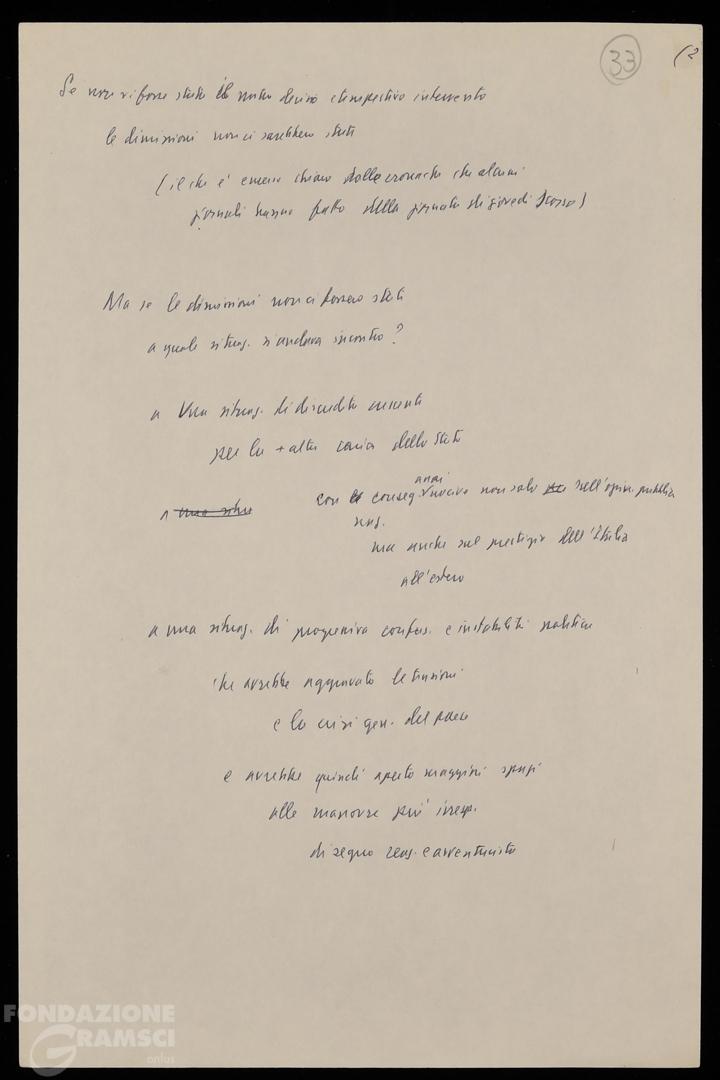 33
(2
Se non vi fosse stato il nostro deciso e tempestivo intervento
le dimissioni non ci sarebbero state
(il che è emerso chiaro dalle cronache che alcuni
giornali hanno fatto della giornata di giovedì scorso)
Ma se le dimissioni non ci fossero state
a quale situaz. si andava incontro?
a una situaz. di discredito crescente
per la + alta carica dello Stato
a una situ
con conseg. assai nocive non solo sull'opin. pubblica
naz.
ma anche sul prestigio dell'Italia
all'estero
a una situaz. di progressiva confus. e instabilità politica
che avrebbe aggravato le tensioni
e la crisi gen. del paese
e avrebbe quindi aperto maggiori spazi
alle manovre più irresp.
di segno reaz. e avventurista
FONDAZIONE
GRAMSCI
onlus